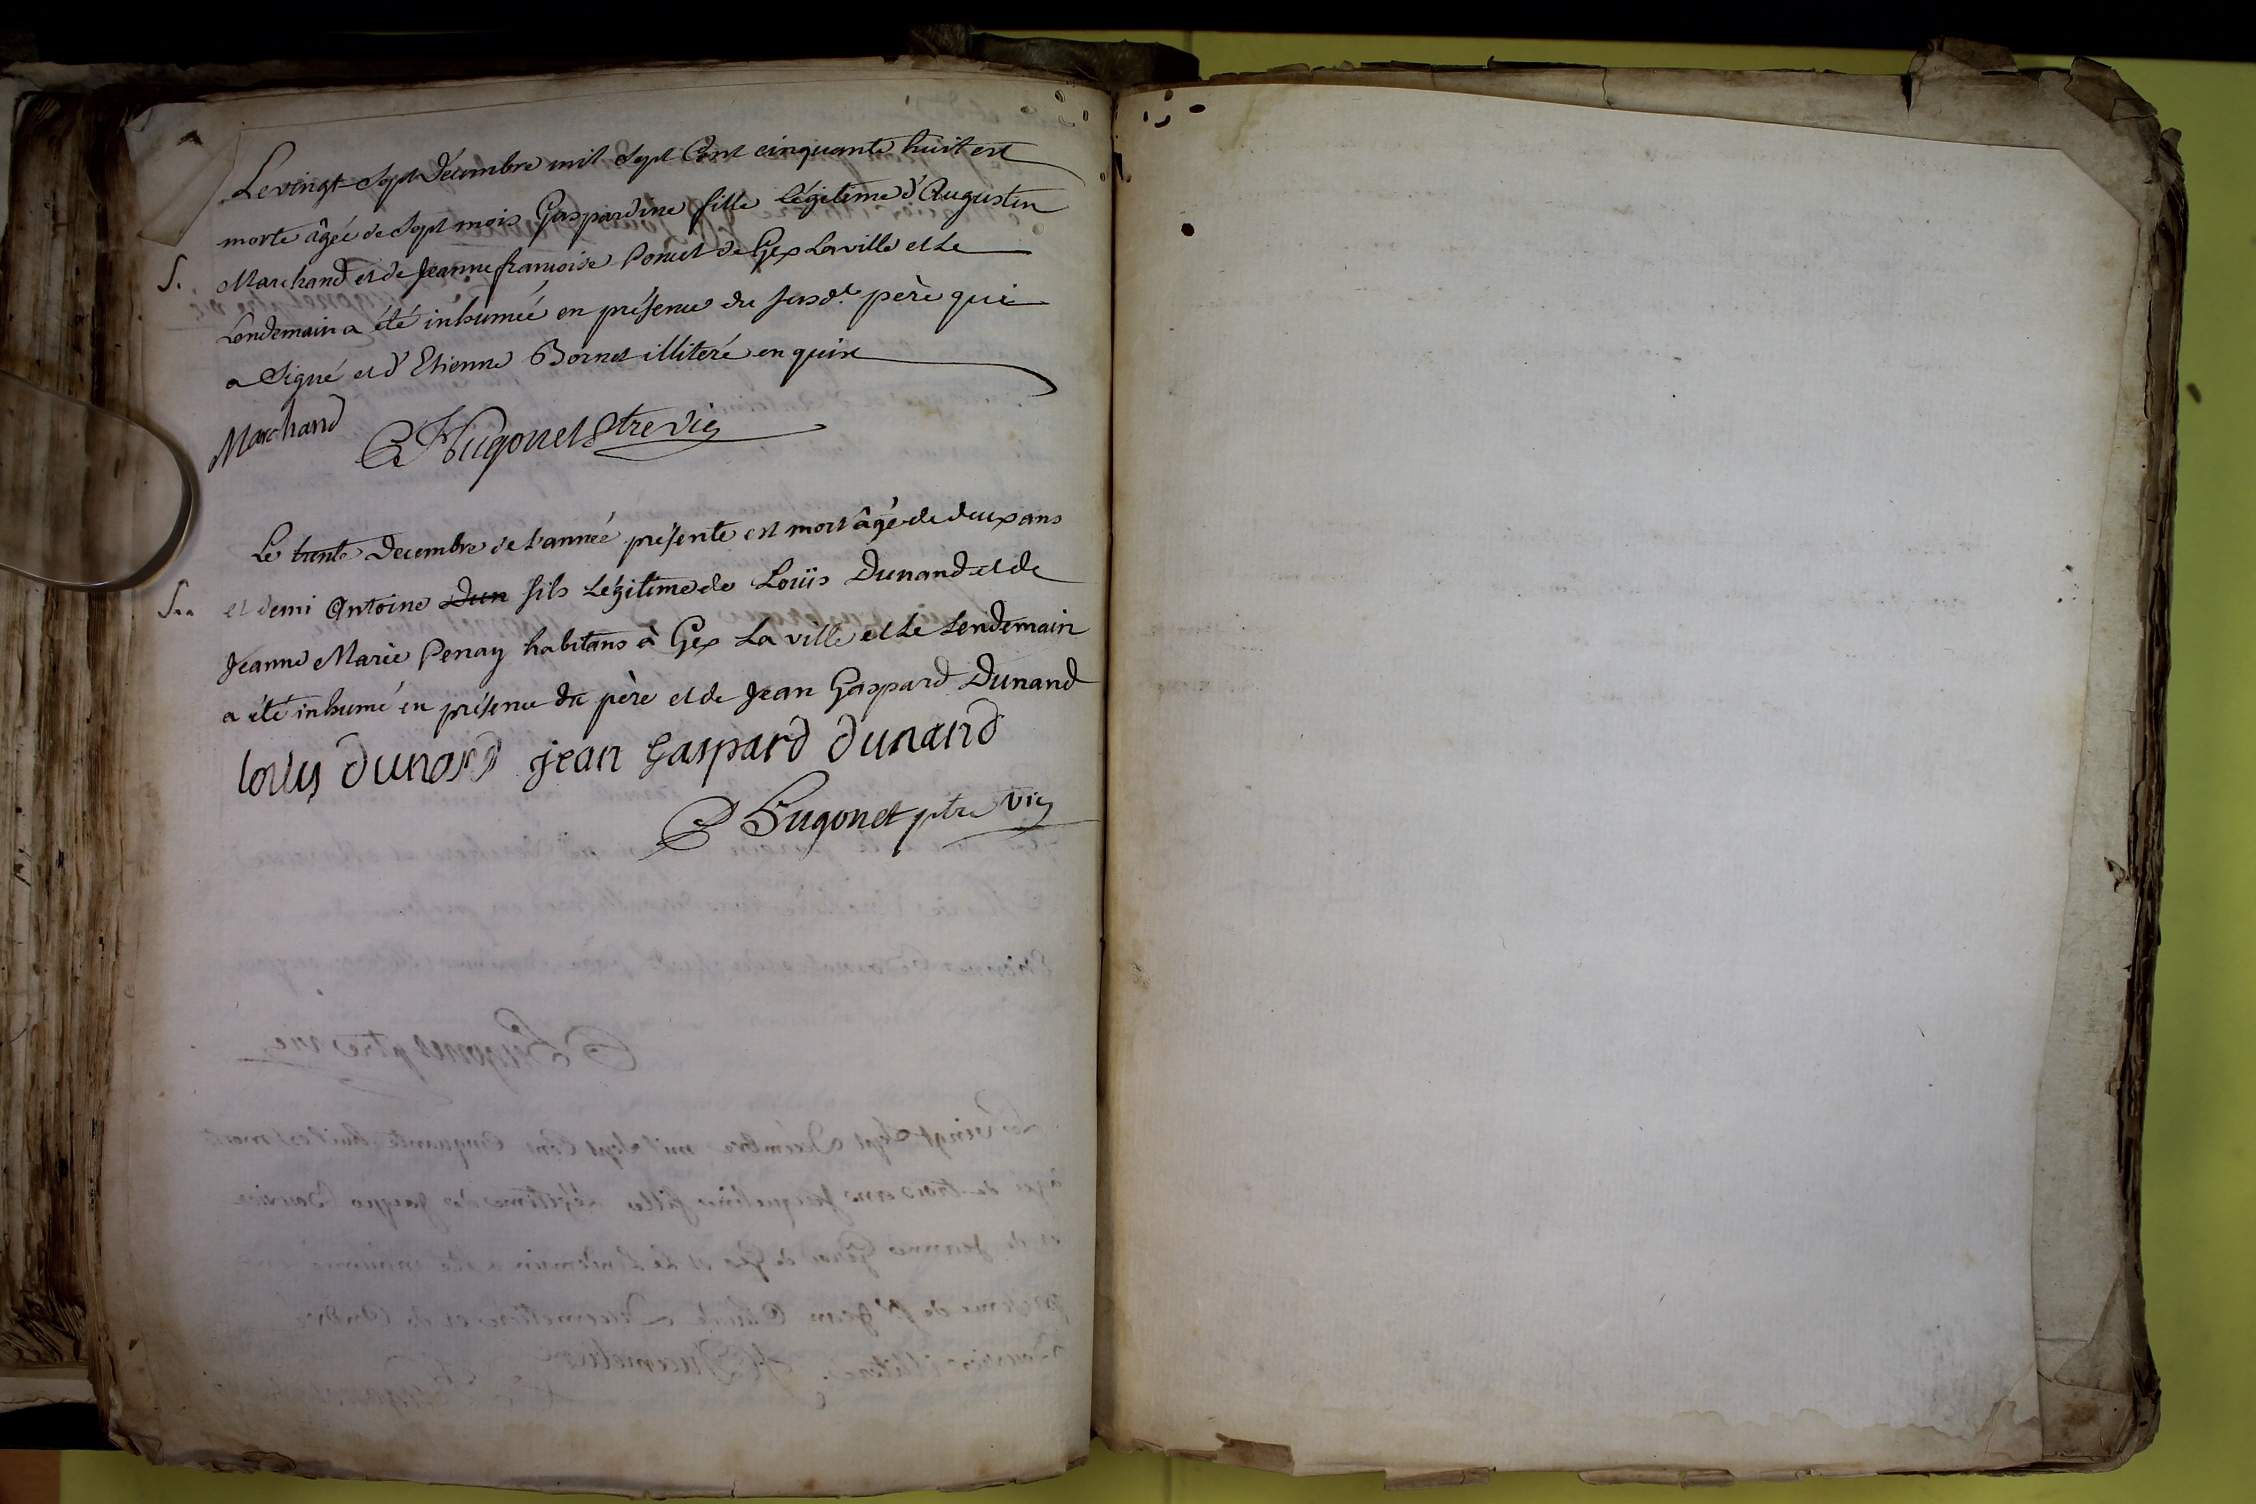 Le vingt-sept Décembre mil sept Cent cinquante huit est
morte âgée de sept mois Gaspardine fille légitime d'Augustin
S. Marchand et de Jeanne françoise Poncet de Gex La ville et Le
Lendemain a été inhumée en présence du susd.t père qui
a signé et d'Etienne Bornet illiteré enquis
Marchand Hugonet ptre vic
Le trente Decembre de l'année présente est mort âgé de deux ans
S.. et demi Antoine Dun fils Légitime de Loüis Dunand et de
Jeanne Marie Penay habitans à Gex La ville et Le Lendemain
a été inhumé en présence du père et de Jean Gaspard Dunand
louis dunand jean gaspard dunand
Hugonet ptre vic